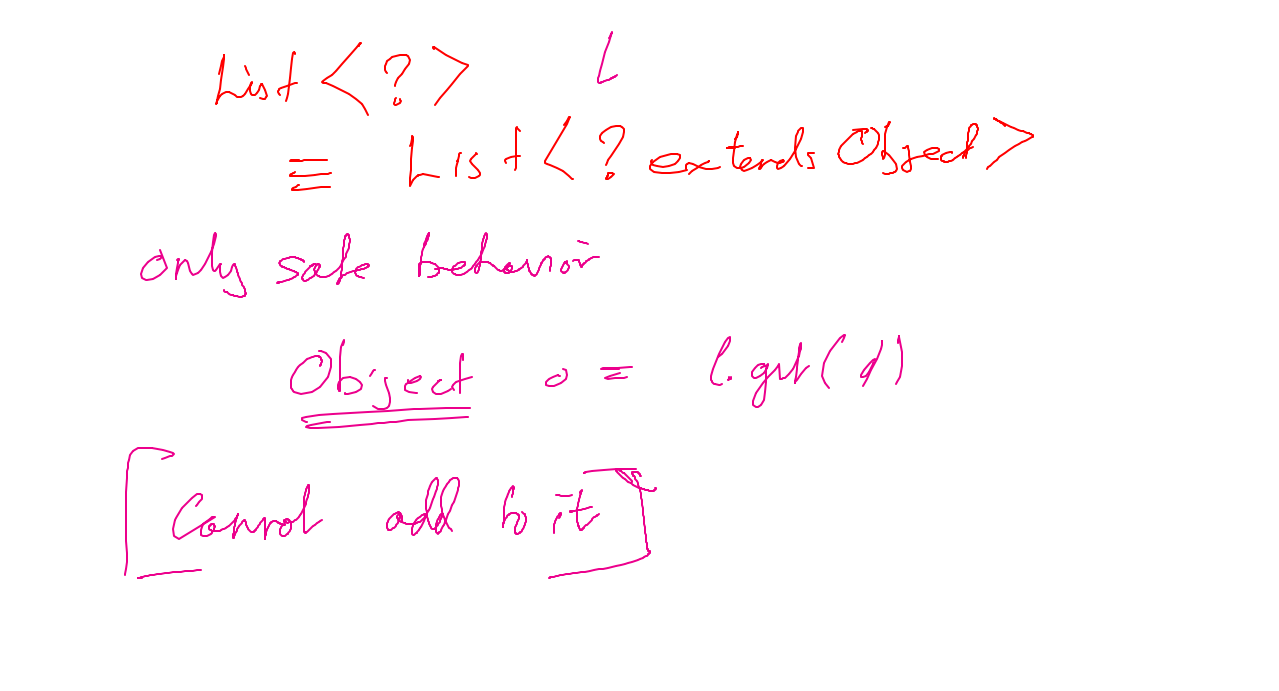 List <?> l
≡ List <? extends Object>
only safe behavior
Object o = l.get(1)
[Cannot add to it]